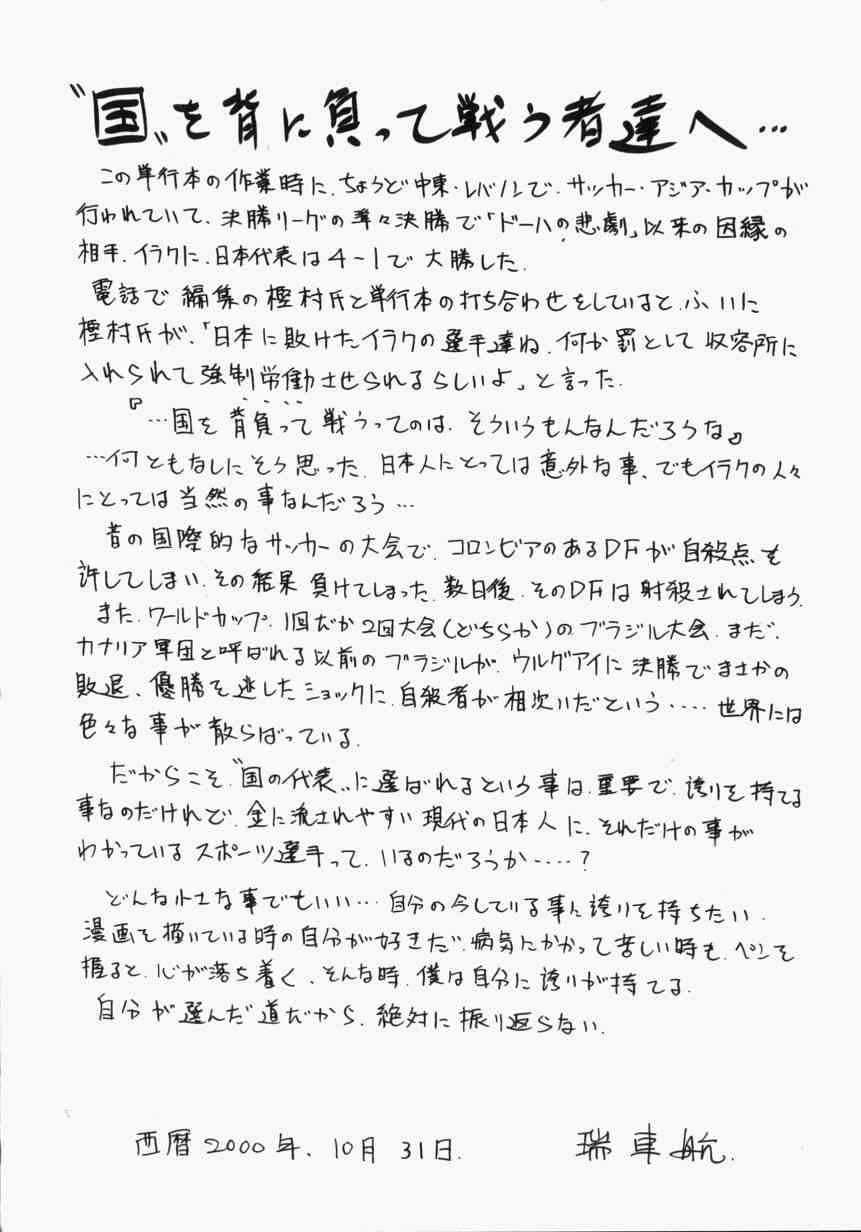 〝国〟を背に負って戦う者達へ…
この単行本の作業時に、ちょうど中東・レバノンで、サッカー・アジア・カップが
行われていて、決勝リーグの準々決勝で「ドーハの悲劇」以来の因縁の
相手、イラクに、日本代表は4-1で大勝した。
電話で編集の樫村氏と単行本の打ち合わせをしていると、ふいに
樫村氏が、「日本に敗けたイラクの選手達ね、何か罰として収容所に
入れられて強制労働させられるらしいよ」と言った。
『…国を背負って戦うってのは、そういうもんなんだろうな』
…何ともなしにそう思った。日本人にとっては意外な事、でもイラクの人々
にとっては当然の事なんだろう…
昔の国際的なサッカーの大会で、コロンビアのあるDFが自殺点を
許してしまい、その結果負けてしまった。数日後、そのDFは射殺されてしまう。
また、ワールドカップ、1回だか2回大会(どちらか)のブラジル大会、まだ、
カナリア軍団と呼ばれる以前のブラジルが、ウルグアイに決勝でまさかの
敗退、優勝を逃したショックに、自殺者が相次いだという‥‥世界には
色々な事が散らばっている。
だからこそ、〝国の代表〟に選ばれるという事は、重要で、誇りを持てる
事なのだけれど、金に流されやすい現代の日本人に、それだけの事が
わかっているスポーツ選手って、いるのだろうか‥‥?
どんな小さな事でもいい…自分の今している事に誇りを持ちたい。
漫画を描いている時の自分が好きだ。病気にかかって苦しい時も、ペンを
握ると、心が落ち着く、そんな時、僕は自分に誇りが持てる。
自分が選んだ道だから、絶対に振り返らない。
西暦2000年、10月31日.
瑞車航.